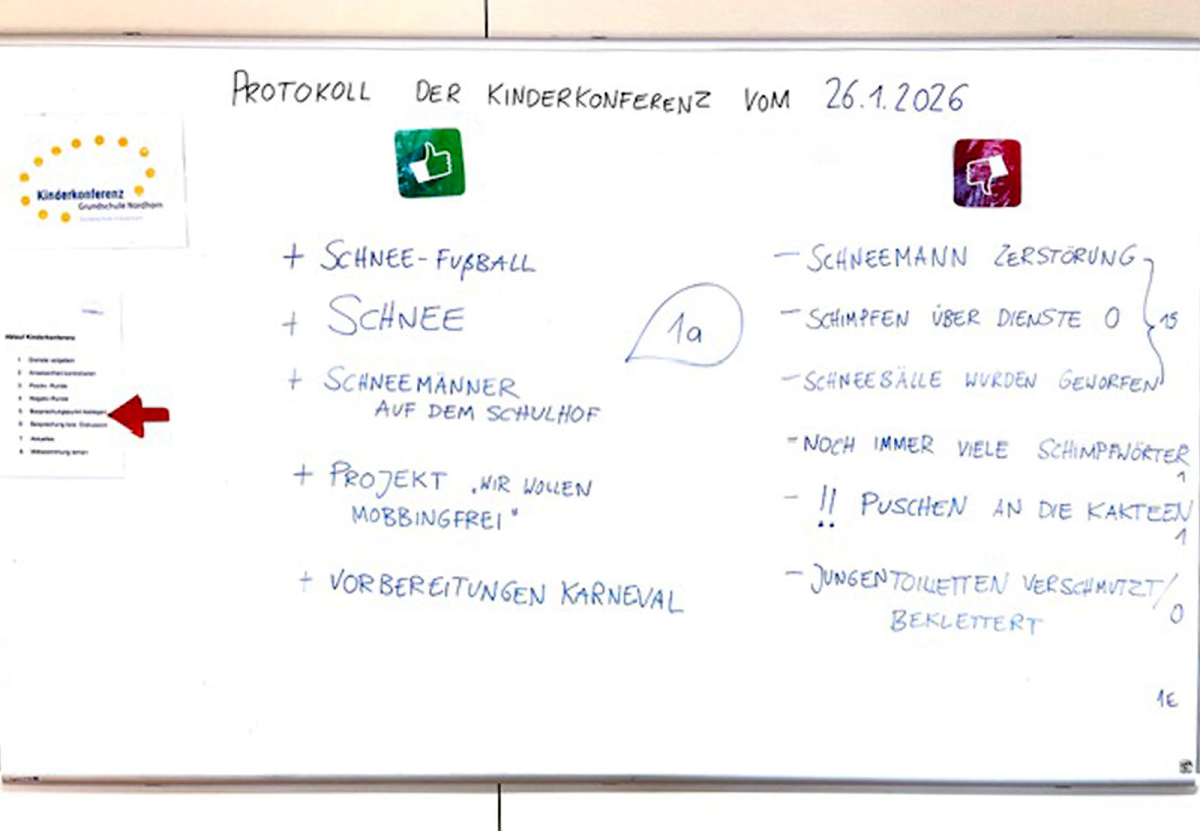 PROTOKOLL DER KINDERKONFERENZ VOM 26.1.2026
Kinderkonferenz
Grundschule Nordhorn
Ablauf Kinderkonferenz
1 Dienste vergeben
2 Anwesenheit kontrollieren
3 Positiv-Runde
4 Negativ-Runde
5 Besprechungspunkt festlegen
6 Besprechung bzw. Diskussion
7 Aktuelles
8
+ SCHNEE-FUßBALL
+ SCHNEE
+ SCHNEEMÄNNER
AUF DEM SCHULHOF
+ PROJEKT „WIR WOLLEN
MOBBINGFREI"
+ VORBEREITUNGEN KARNEVAL
1a
- SCHNEEMANN ZERSTÖRUNG
- SCHIMPFEN ÜBER DIENSTE 0
15
- SCHNEEBÄLLE WURDEN GEWORFEN
- NOCH IMMER VIELE SCHIMPFWÖRTER
1
- !! PUSCHEN AN DIE KAKTEEN
1
- JUNGENTOILETTEN VERSCHMUTZT/
BEKLETTERT
0
1E